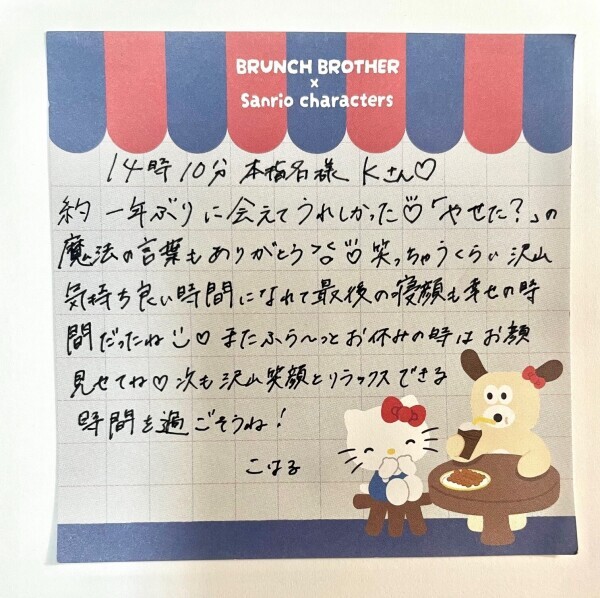 BRUNCH BROTHER
×
Sanrio characters
14時10分 本指名様 Kさん♡
約一年ぶりに会えてうれしかった♡「やせた?」の
魔法の言葉もありがとう 笑っちゃうくらい沢山
気持ち良い時間になれて最後の寝顔も幸せの時
間だったね♡またふら〜っとお休みの時はお顔
見せてね♡次も沢山笑顔とリラックスできる
時間を過ごそうね!
こはる